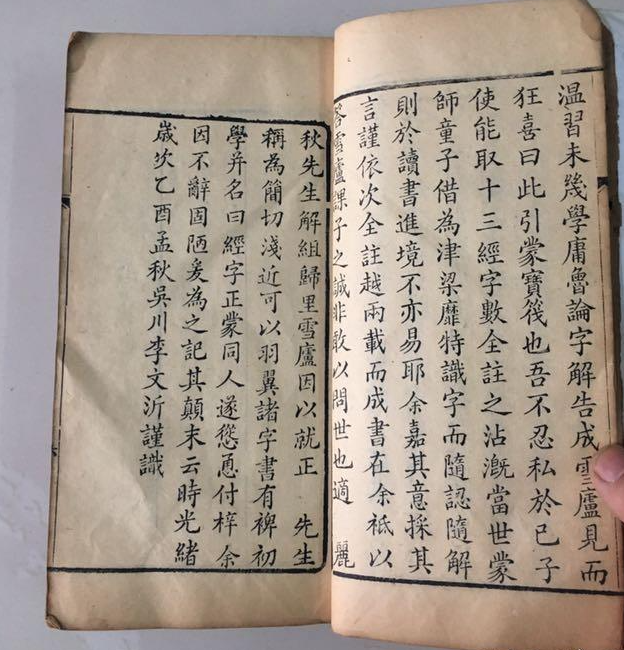 温習未幾學庸魯論字解告成雪廬見而
狂喜曰此引蒙寶筏也吾不忍私於己子
使能取十三經字數全註之沾漑當世蒙
師童子借為津梁靡特識字而隨認隨解
則於讀書進境不亦易耶余嘉其意採其
言謹依次全註越兩載而成書在余祗以
答雪廬課子之誠非敢以問世也適 麗
秋先生解組歸里雪廬因以就正 先生
稱為簡切淺近可以羽翼諸字書有裨初
學并名曰經字正蒙同人遂慫恿付梓余
因不辭固陋爰為之記其顛末云時光緒
歲次乙酉孟秋吳川李文沂謹識